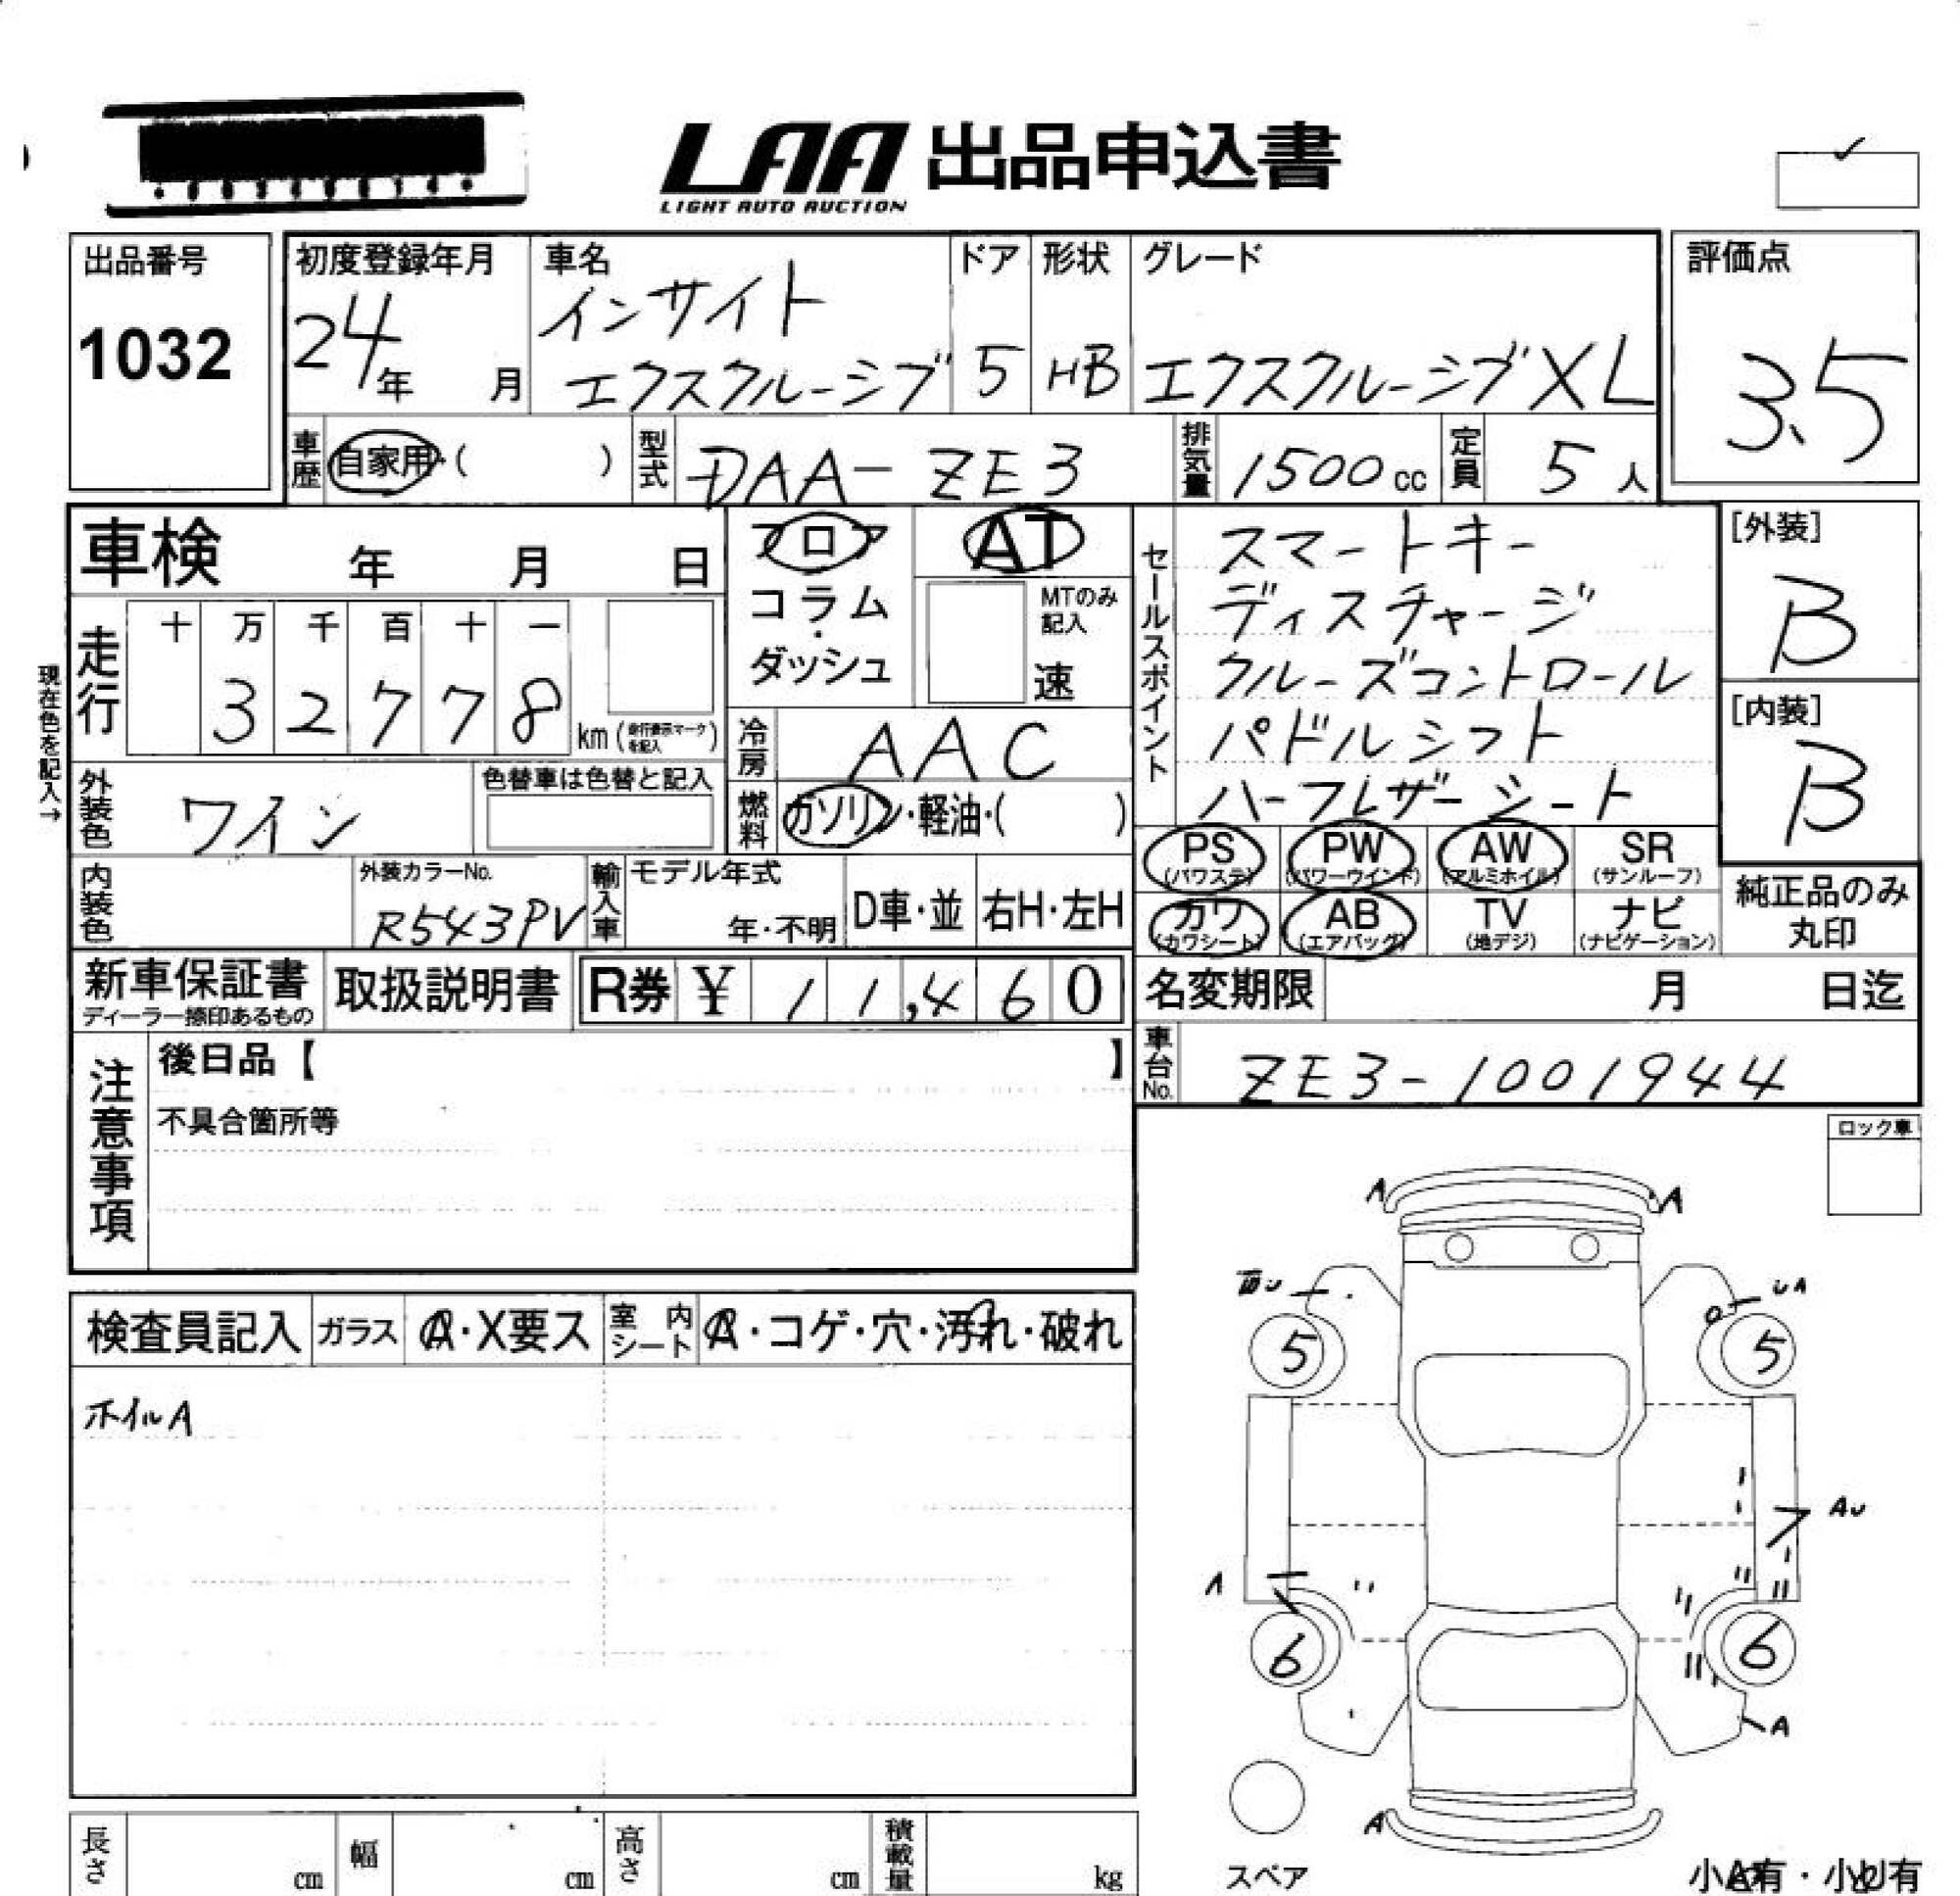 LAA 出品申込書
LIGHT AUTO AUCTION
出品番号
1032
初度登録年月
24年 月
車名
インサイト
エクスクルーシブ
ドア
5
形状
HB
グレード
エクスクルーシブXL
評価点
3.5
車歴
自家用・( )
型式
DAA-ZE3
排気量
1500cc
定員
5人
車検 年 月 日
フロア
コラム
・
ダッシュ
AT
MTのみ
記入
速
セールスポイント
スマートキー
ディスチャージ
クルーズコントロール
パドルシフト
ハーフレザーシート
[外装]
B
[内装]
B
走行
十 万 千 百 十 一
3 2 7 7 8
km (走行表示マークを記入)
現在色を記入→
冷房
AAC
外装色
ワイン
色替車は色替と記入
燃料
ガソリン・軽油・( )
PS
(パワステ)
PW
(パワーウインド)
AW
(アルミホイル)
SR
(サンルーフ)
カワ
(カワシート)
AB
(エアバッグ)
TV
(地デジ)
ナビ
(ナビゲーション)
純正品のみ
丸印
内装色
外装カラーNo.
R543PV
輸入車
モデル年式
年・不明
D車・並
右H・左H
新車保証書
ディーラー捺印あるもの
取扱説明書
R券 ¥ 11,460
名変期限 月 日迄
車台No.
ZE3-1001944
注意事項
後日品【 】
不具合箇所等
ロック車
検査員記入
ガラス
A・X要ス
室内
シート
A・コゲ・穴・汚れ・破れ
ホイルA
A A
UA
5 5
AU
A
6 6
A
A
スペア
小A有・小U有
長さ cm
幅 cm
高さ cm
積載量 kg